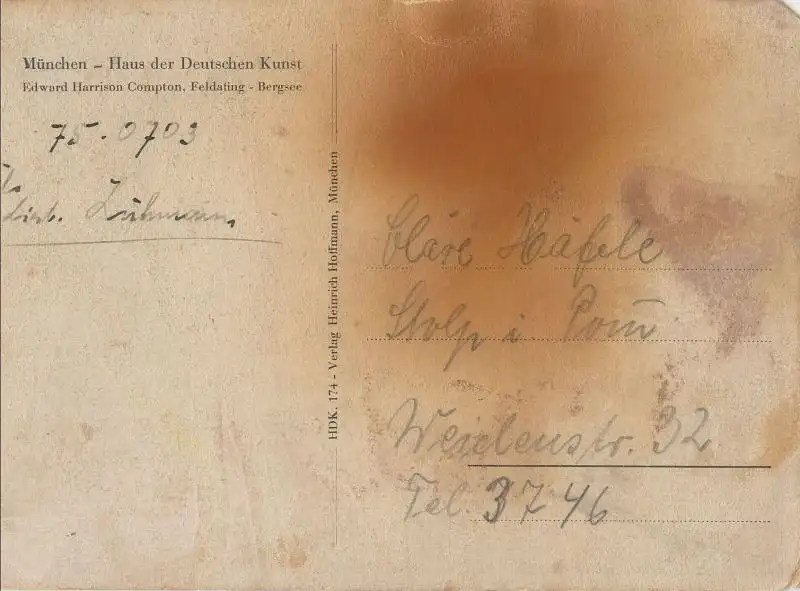 München – Haus der Deutschen Kunst
Edward Harrison Compton, Feldafing - Bergsee
75.0703
HDK. 174 - Verlag Heinrich Hoffmann, München
Cläre Häfele
Stolp i. Pom̅.
Weidenstr. 32
Tel. 3746